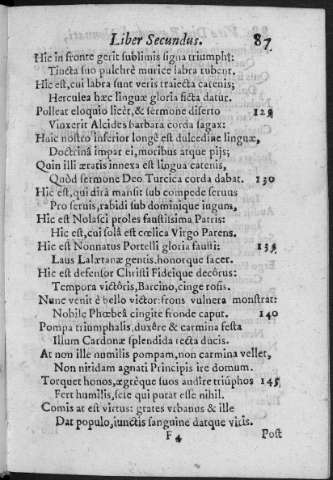 Liber Secundus. 87
Hic in fronte gerit sublimis signa triumphi:
Tincta suo pulchrè murice labra rubent.
Hic est, cui labra sunt veris traiecta catenis;
Herculea hæc linguæ gloria ficta datur.
Polleat eloquio licèt, & sermone diserto 125
Vinxerit Alcides barbara corda sagax:
Huic nostro inferior longè est dulcedine linguæ,
Doctrinâ impar ei, moribus atque pijs;
Quin illi æratis innexa est lingua catenis,
Quòd sermone Deo Turcica corda dabat. 130
Hic est, qui dirâ mansit sub compede seruus
Pro seruis, rabidi sub dominique iugum,
Hic est Nolasci proles faustissima Patris:
Hic est, cui sola est cœlica Virgo Parens.
Hic est Nonnatus Portelli gloria fausti: 135
Laus Laletanæ gentis, honorque sacer.
Hic est defensor Christi Fideique decôrus:
Tempora victôris, Barcino, cinge rosis.
Nunc venit è bello victor: frons vulnera monstrat:
Nobile Phœbeâ cingite fronde caput. 140
Pompa triumphalis, duxêre & carmina festa
Illum Cardonæ splendida tecta ducis.
At non ille humilis pompam, non carmina vellet,
Non nitidam agnati Principis ire domum.
Torquet honos, ægrèque suos audîre triûphos 145
Fert humilis, sese qui putat esse nihil.
Comis at est virtus: grates vrbanus & ille
Dat populo, iunctis sanguine datque viris.
F 4 Post